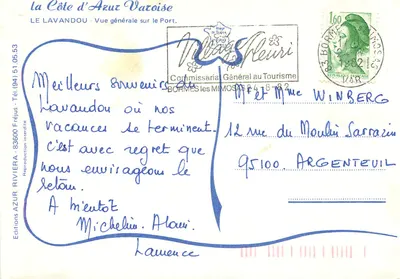 la Côte d'Azur Varoise
LE LAVANDOU - Vue générale sur le Port.
Village Fleuri
Commissariat Général au Tourisme
BORMES les MIMOSAS
1,60
Meilleurs souvenirs du
Lavandou où nos
vacances se terminent.
c'est avec regret que
nous envisageons le
retour.
A bientôt
Michelin. Alain.
Laurence
Mr et Mme WINBERG
12 rue du Moulin Sarrazin
95100. ARGENTEUIL
Editions AZUR RIVIERA - 83600 Fréjus - Tél. (94) 51 05 53
Reproduction interdite